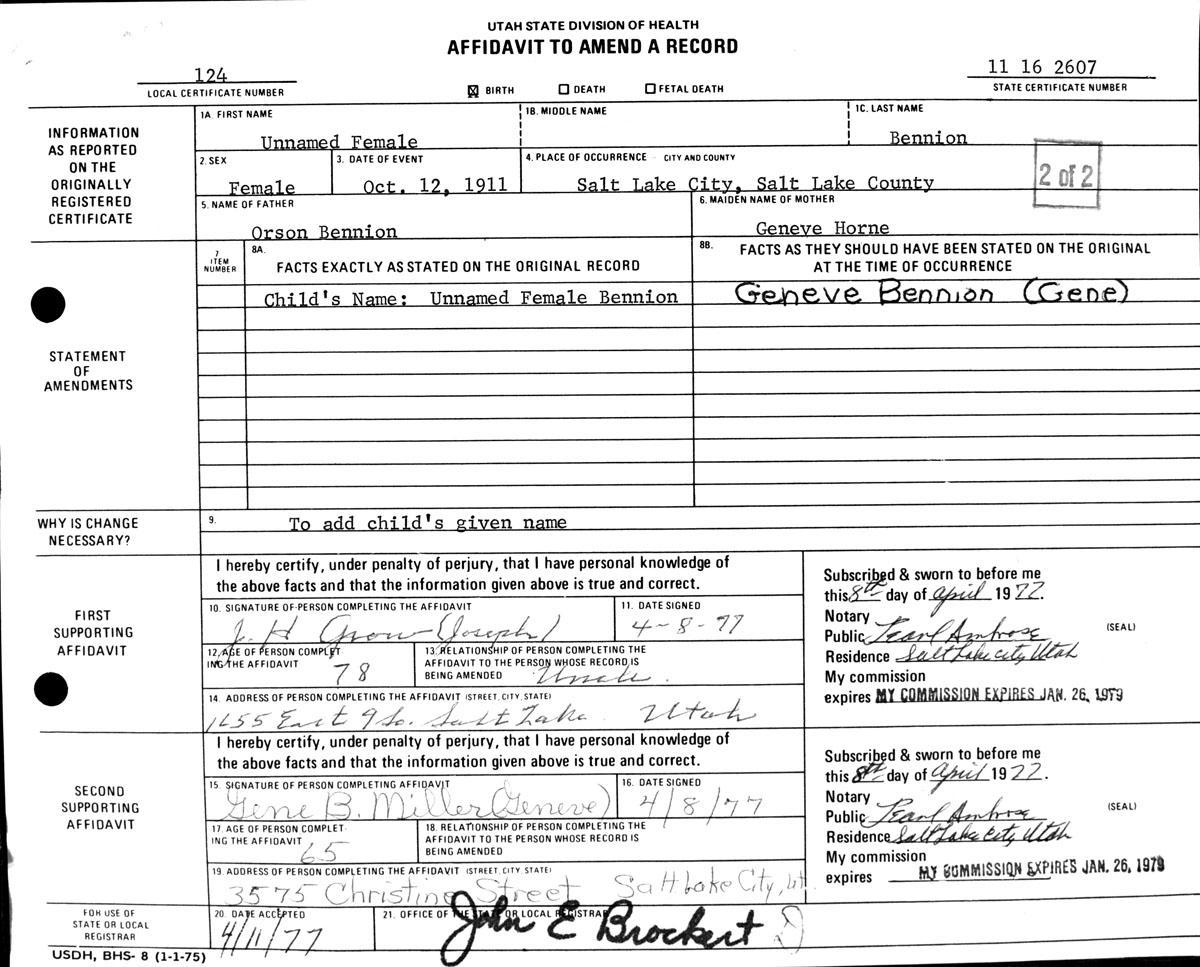 UTAH STATE DIVISION OF HEALTH
AFFIDAVIT TO AMEND A RECORD
124
LOCAL CERTIFICATE NUMBER
☒ BIRTH ☐ DEATH ☐ FETAL DEATH
11 16 2607
STATE CERTIFICATE NUMBER
INFORMATION
AS REPORTED
ON THE
ORIGINALLY
REGISTERED
CERTIFICATE
1A. FIRST NAME
Unnamed Female
1B. MIDDLE NAME
1C. LAST NAME
Bennion
2. SEX
Female
3. DATE OF EVENT
Oct. 12, 1911
4. PLACE OF OCCURRENCE - CITY AND COUNTY
Salt Lake City, Salt Lake County
2 of 2
5. NAME OF FATHER
Orson Bennion
6. MAIDEN NAME OF MOTHER
Geneve Horne
STATEMENT
OF
AMENDMENTS
7
ITEM
NUMBER
8A.
FACTS EXACTLY AS STATED ON THE ORIGINAL RECORD
8B.
FACTS AS THEY SHOULD HAVE BEEN STATED ON THE ORIGINAL
AT THE TIME OF OCCURRENCE
Child's Name: Unnamed Female Bennion
Geneve Bennion (Gene)
WHY IS CHANGE
NECESSARY?
9.
To add child's given name
FIRST
SUPPORTING
AFFIDAVIT
I hereby certify, under penalty of perjury, that I have personal knowledge of
the above facts and that the information given above is true and correct.
10. SIGNATURE OF PERSON COMPLETING THE AFFIDAVIT
J. H Grow (Joseph)
11. DATE SIGNED
4-8-77
12. AGE OF PERSON COMPLET-
ING THE AFFIDAVIT
78
13. RELATIONSHIP OF PERSON COMPLETING THE
AFFIDAVIT TO THE PERSON WHOSE RECORD IS
BEING AMENDED
Uncle.
14. ADDRESS OF PERSON COMPLETING THE AFFIDAVIT (STREET, CITY, STATE)
1455 East 9 So. Salt Lake. Utah
Subscribed & sworn to before me
this 8th day of April 1977.
Notary
Public Pearl Ambrose
(SEAL)
Residence Salt Lake City Utah
My commission
expires MY COMMISSION EXPIRES JAN. 26, 1979
SECOND
SUPPORTING
AFFIDAVIT
I hereby certify, under penalty of perjury, that I have personal knowledge of
the above facts and that the information given above is true and correct.
15. SIGNATURE OF PERSON COMPLETING AFFIDAVIT
Gene B. Miller (Geneve)
16. DATE SIGNED
4/8/77
17. AGE OF PERSON COMPLET-
ING THE AFFIDAVIT
65
18. RELATIONSHIP OF PERSON COMPLETING THE
AFFIDAVIT TO THE PERSON WHOSE RECORD IS
BEING AMENDED
19. ADDRESS OF PERSON COMPLETING THE AFFIDAVIT (STREET, CITY, STATE)
3575 Christine Street Salt Lake City, Ut
Subscribed & sworn to before me
this 8th day of April 1977.
Notary
Public Pearl Ambrose
(SEAL)
Residence Salt Lake City Utah
My commission
expires MY COMMISSION EXPIRES JAN. 26, 1979
FOR USE OF
STATE OR LOCAL
REGISTRAR
20. DATE ACCEPTED
4/11/77
21. OFFICE OF THE STATE OR LOCAL REGISTRAR
John E Brockert
USDH, BHS- 8 (1-1-75)